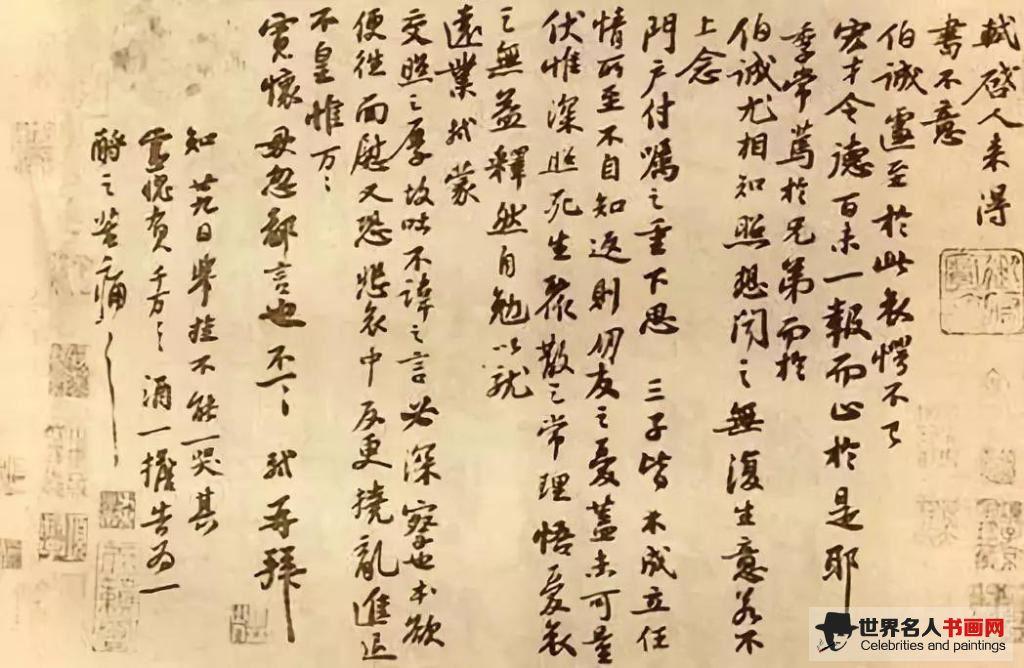 轼启人来得
书不意
伯诚遽至於此哀愕不已
宏才令德百未一報而止於是耶
季常篤於兄弟而於
伯诚尤相知照想闻之無復生意若不
上念
門户付嘱之重下思三子皆未成立任
情所至不自知返則朋友之憂蓋未可量
伏惟深照死生聚散之常理悟憂哀
之無益釋然自勉以就
遠業轼蒙
交照之厚故吐不諱之言必深察也本欲
便往面慰又恐悲哀中反更撓亂進退
不皇惟万々
寬懷毋忽鄙言也不一々轼再拜
知廿九日舉挂不能一哭其
靈愧負千万々酒一擔告為一
酹之苦痛
世界名人书画网
Celebrities and paintings